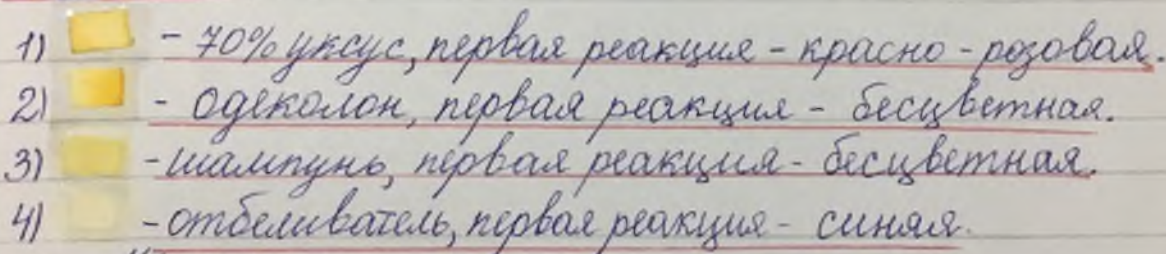 1) - 70% уксус, первая реакция - красно - розовая.
2) - одеколон, первая реакция - бесцветная.
3) - шампунь, первая реакция - бесцветная.
4) - отбеливатель, первая реакция - синяя.